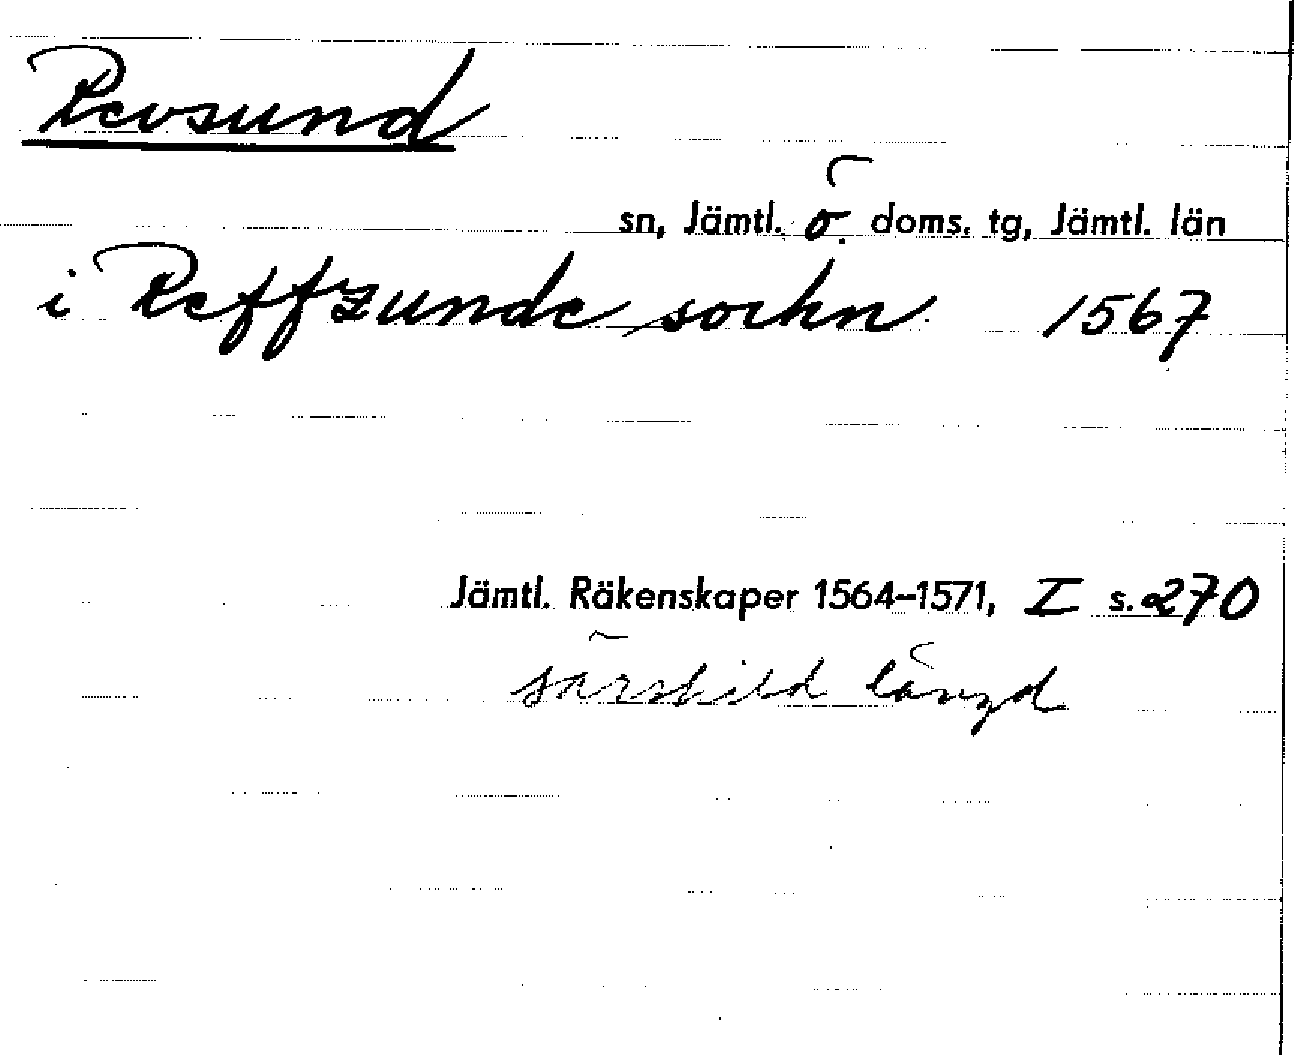 Revsund
sn, Jämtl. ö. doms. tg, Jämtl. län
i Reffzunde sochn 1567
Jämtl. Räkenskaper 1564–1571, I s. 270
särskild längd